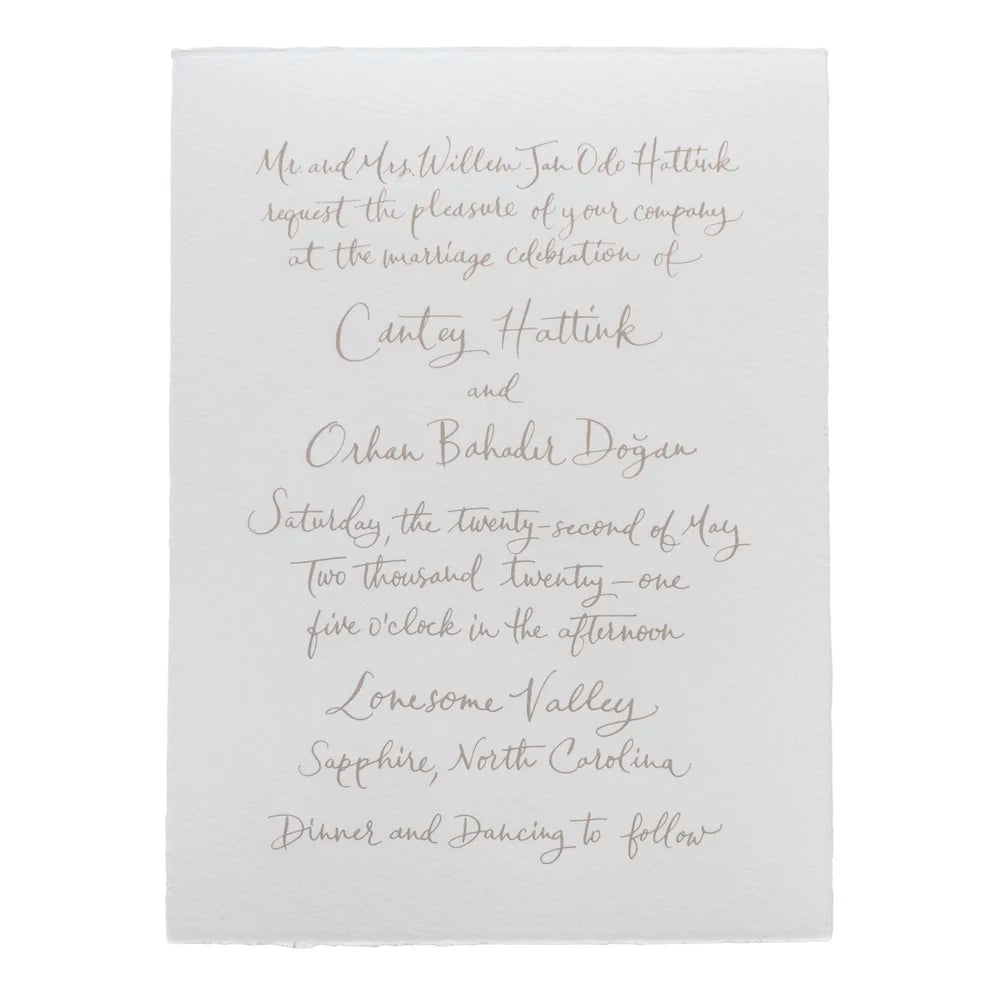 Mr. and Mrs. Willem-Jan Odo Hattink
request the pleasure of your company
at the marriage celebration of
Cantey Hattink
and
Orhan Bahadır Doğan
Saturday, the twenty-second of May
Two thousand twenty-one
five o'clock in the afternoon
Lonesome Valley
Sapphire, North Carolina
Dinner and Dancing to follow